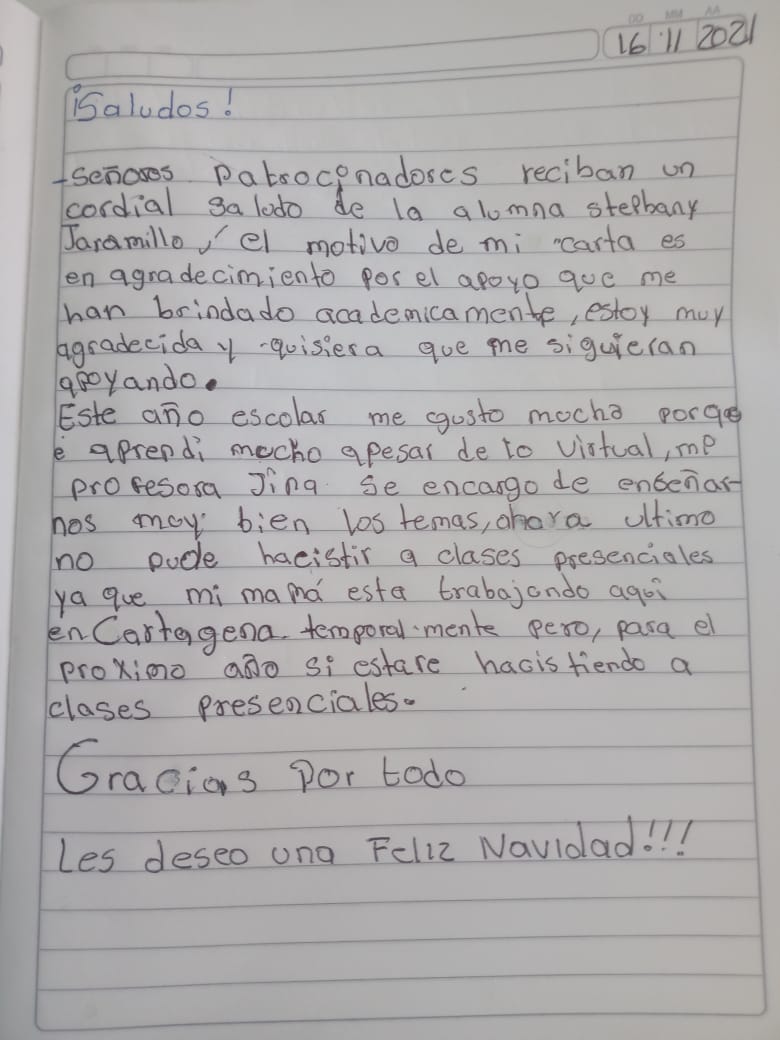 DD MM AA
16 11 2021
¡Saludos!
-Señores Patrocinadores reciban un
cordial saludo de la alumna stephany
Jaramillo, el motivo de mi carta es
en agradecimiento por el apoyo que me
han brindado academicamente, estoy muy
agradecida y quisiera que me siguieran
apoyando.
Este año escolar me gusto mucho porqe
e aprendi mucho apesar de lo virtual, mi
profesora Jina se encargo de enseñar
nos muy bien los temas, ahora ultimo
no pude hacistir a clases presenciales
ya que mi mamá esta trabajando aqui
en Cartagena temporal.mente pero, para el
proximo año si estare hacistiendo a
clases presenciales.
Gracias por todo
Les deseo una Feliz Navidad!!!